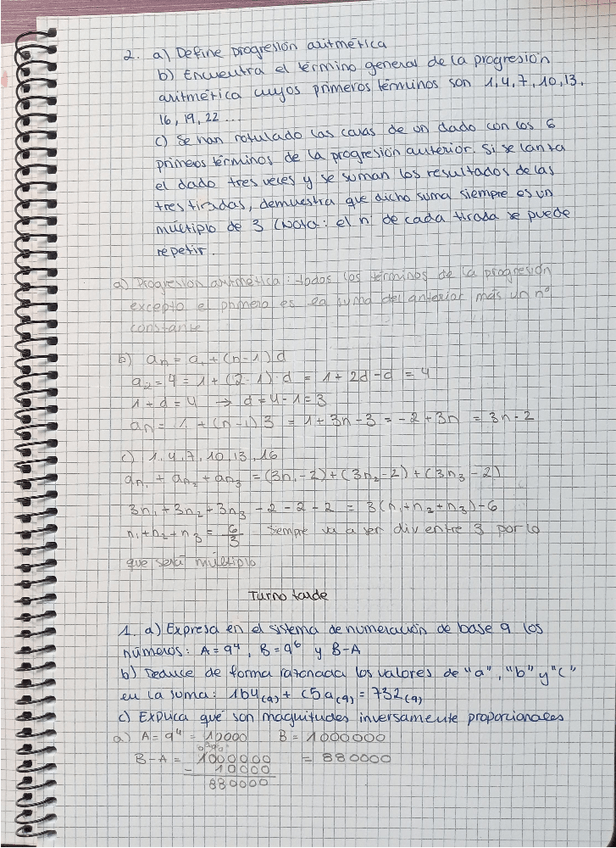 2. a) Define progresión aritmética
b) Encuentra el término general de la progresión
aritmética cuyos primeros términos son 1,4,7,10,13,
16,19,22....
c) Se han rotulado las caras de un dado con los 6
primeros términos de la progresión anterior. Si se lanza
el dado tres veces y se suman los resultados de las
tres tiradas, demuestra que dicho suma siempre es un
múltiplo de 3 (Nota: el nº de cada tirada se puede
repetir.
a) Progresión aritmética: todos los términos de la progresión
excepto el primero es la suma del anterior más un nº
constante
b) an = a1 + (n-1) d
a2 = 4 = 1 + (2-1)·d = 1 + 2d - d = 4
1 + d = 4 → d = 4 - 1 = 3
an = 1 + (n-1) 3 = 1 + 3n - 3 = -2 + 3n = 3n - 2
c) 1,4,7,10,13,16
an1 + an2 + an3 = (3n1 - 2) + (3n2 - 2) + (3n3 - 2)
3n1 + 3n2 + 3n3 - 2 - 2 - 2 = 3(n1 + n2 + n3) - 6
n1 + n2 + n3 = 6/3 Siempre va a ser div entre 3 por lo
que será múltiplo
Turno tarde
1. a) Expresa en el sistema de numeración de base 9 los
números: A = 9⁴, B = 9⁶ y B-A
b) Deduce de forma razonada los valores de "a", "b" y "c"
en la suma: 1b4(9) + c5a(9) = 732(9)
c) Explica qué son magnitudes inversamente proporcionales
a) A = 9⁴ = 10000 B = 1000000
B-A = 1000000 = 880000
- 10000
880000